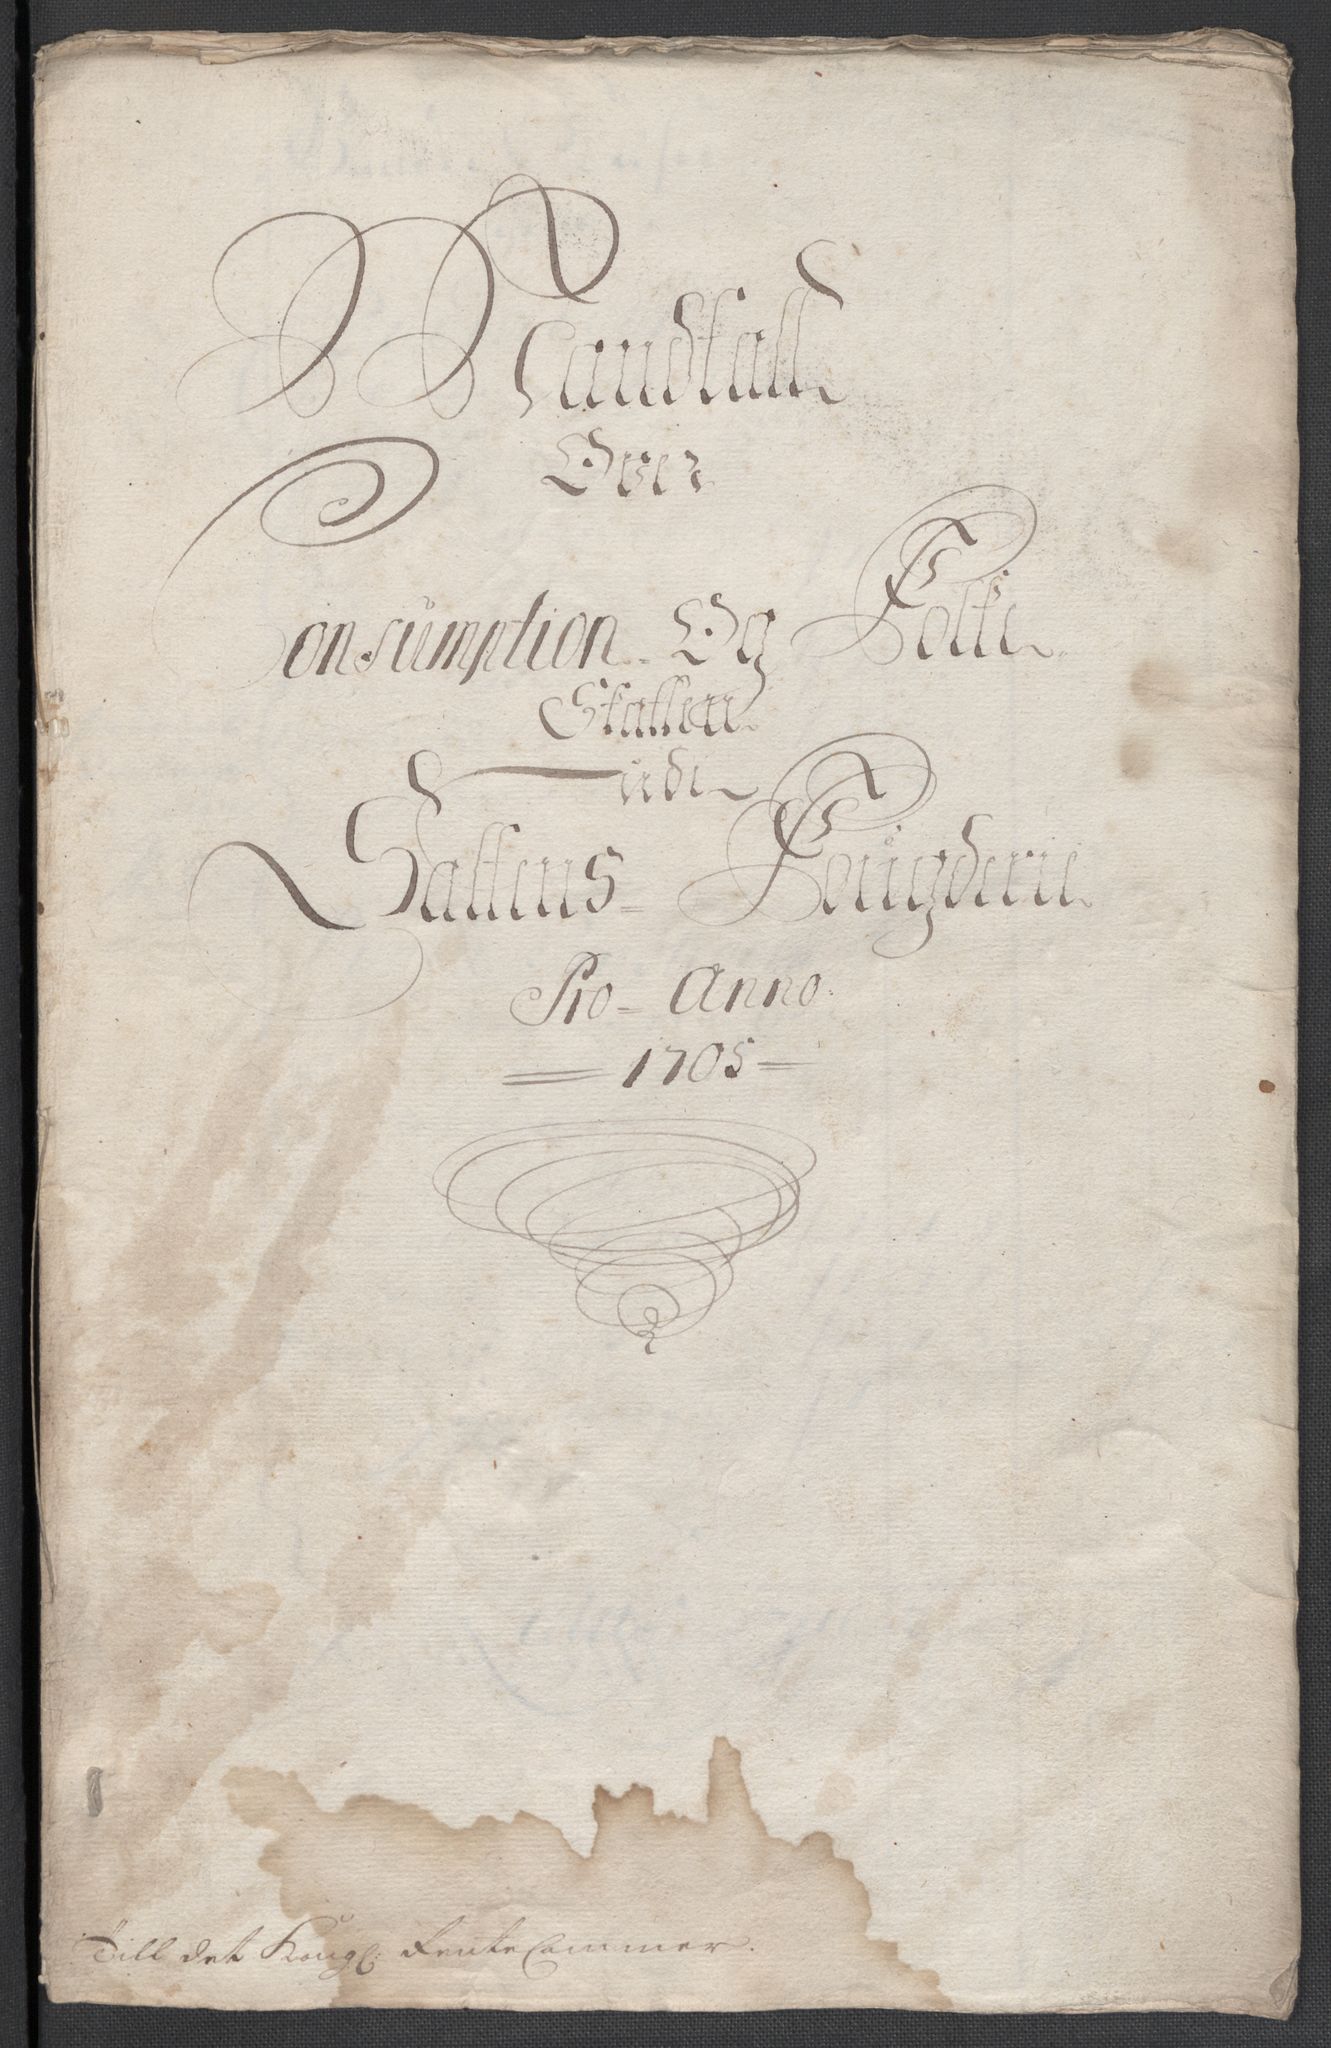 Mandtall
Over
Consumption Og Folke
Skatten
udi
Saltens Fougderie
Pro Anno
1705
Till det Kongl: RenteCammer.